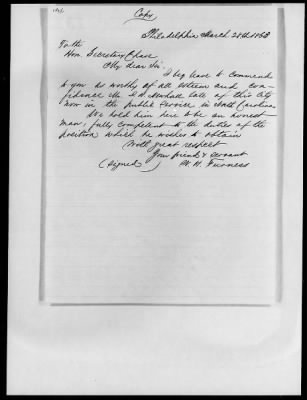 Copy
Philadelphia March 28th 1863
To the
Hon. Secretary Chase
My dear Sir.
I beg leave to commend
to you as worthy of all esteem and con-
fidence Mr. Marshall late of this City
now in the public service in North Carolina
We hold him here to be an honest
man, fully competent to the duties of the
position which he wishes to obtain
With great respect
Your friend & servant
(Signed) W. H. Furness